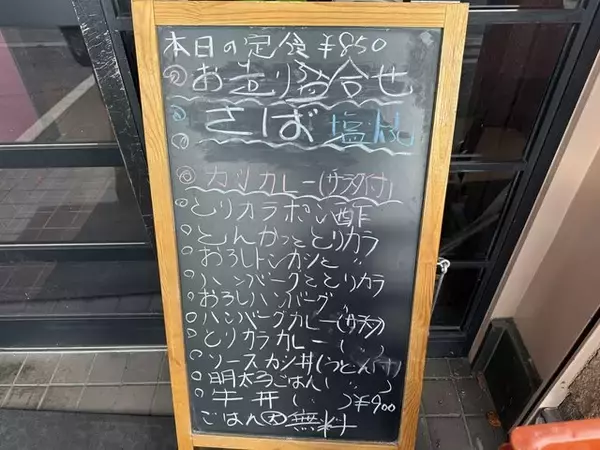 本日の定食 ¥850
お造り盛合せ
さば 塩焼
カツカレー(サラダ付)
とりカラポン酢
とんかつととりカラ
おろしトンカツと 〃
ハンバーグととりカラ
おろしハンバーグ 〃
ハンバーグカレー(サラダ)
とりカラカレー( 〃
ソースカツ丼(うどん付)
明太子ごはん( 〃 )
牛丼( 〃 )¥900
ごはん大無料